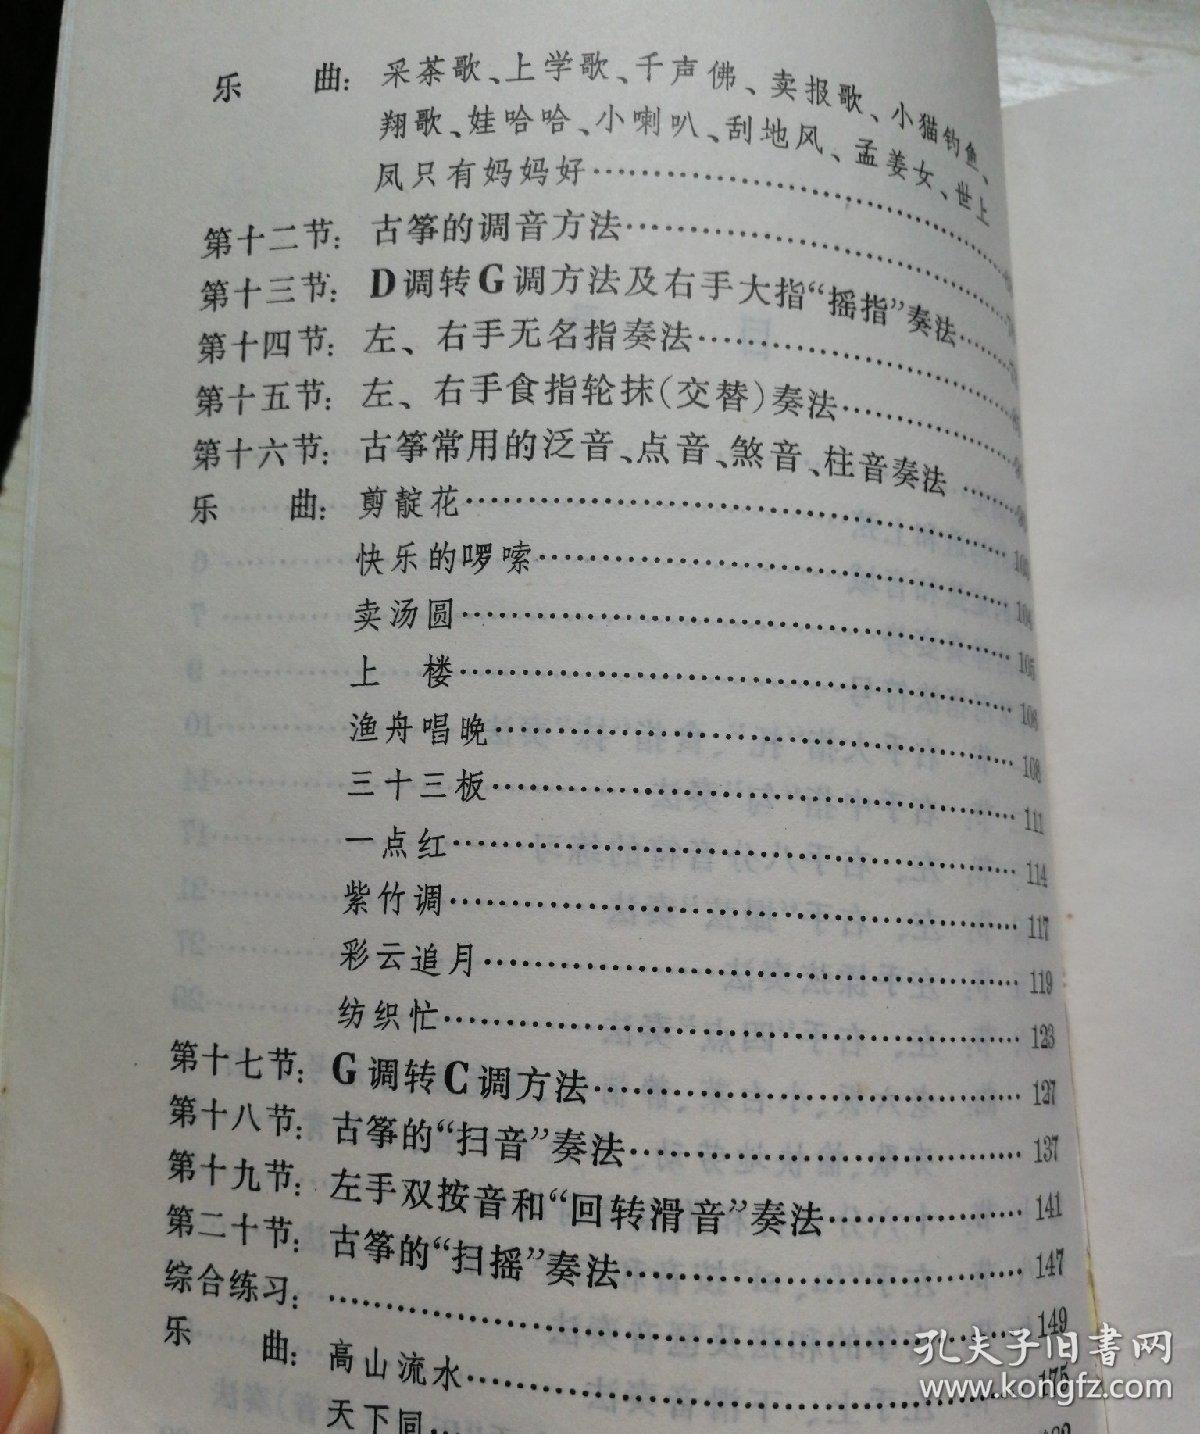 乐 曲：采茶歌、上学歌、千声佛、卖报歌、小猫钓鱼、
翔歌、娃哈哈、小喇叭、刮地风、孟姜女、世上
凤只有妈妈好……
第十二节：古筝的调音方法……
第十三节：D调转G调方法及右手大指“摇指”奏法……
第十四节：左、右手无名指奏法……
第十五节：左、右手食指轮抹(交替)奏法……
第十六节：古筝常用的泛音、点音、煞音、柱音奏法……
乐 曲：剪靛花……103
快乐的啰嗦……104
卖汤圆……105
上 楼……106
渔舟唱晚……108
三十三板……111
一点红……114
紫竹调……117
彩云追月……119
纺织忙……123
第十七节：G调转C调方法……127
第十八节：古筝的“扫音”奏法……137
第十九节：左手双按音和“回转滑音”奏法……141
第二十节：古筝的“扫摇”奏法……147
综合练习：……149
乐 曲：高山流水……175
天下同……
孔夫子旧书网
www.kongfz.com